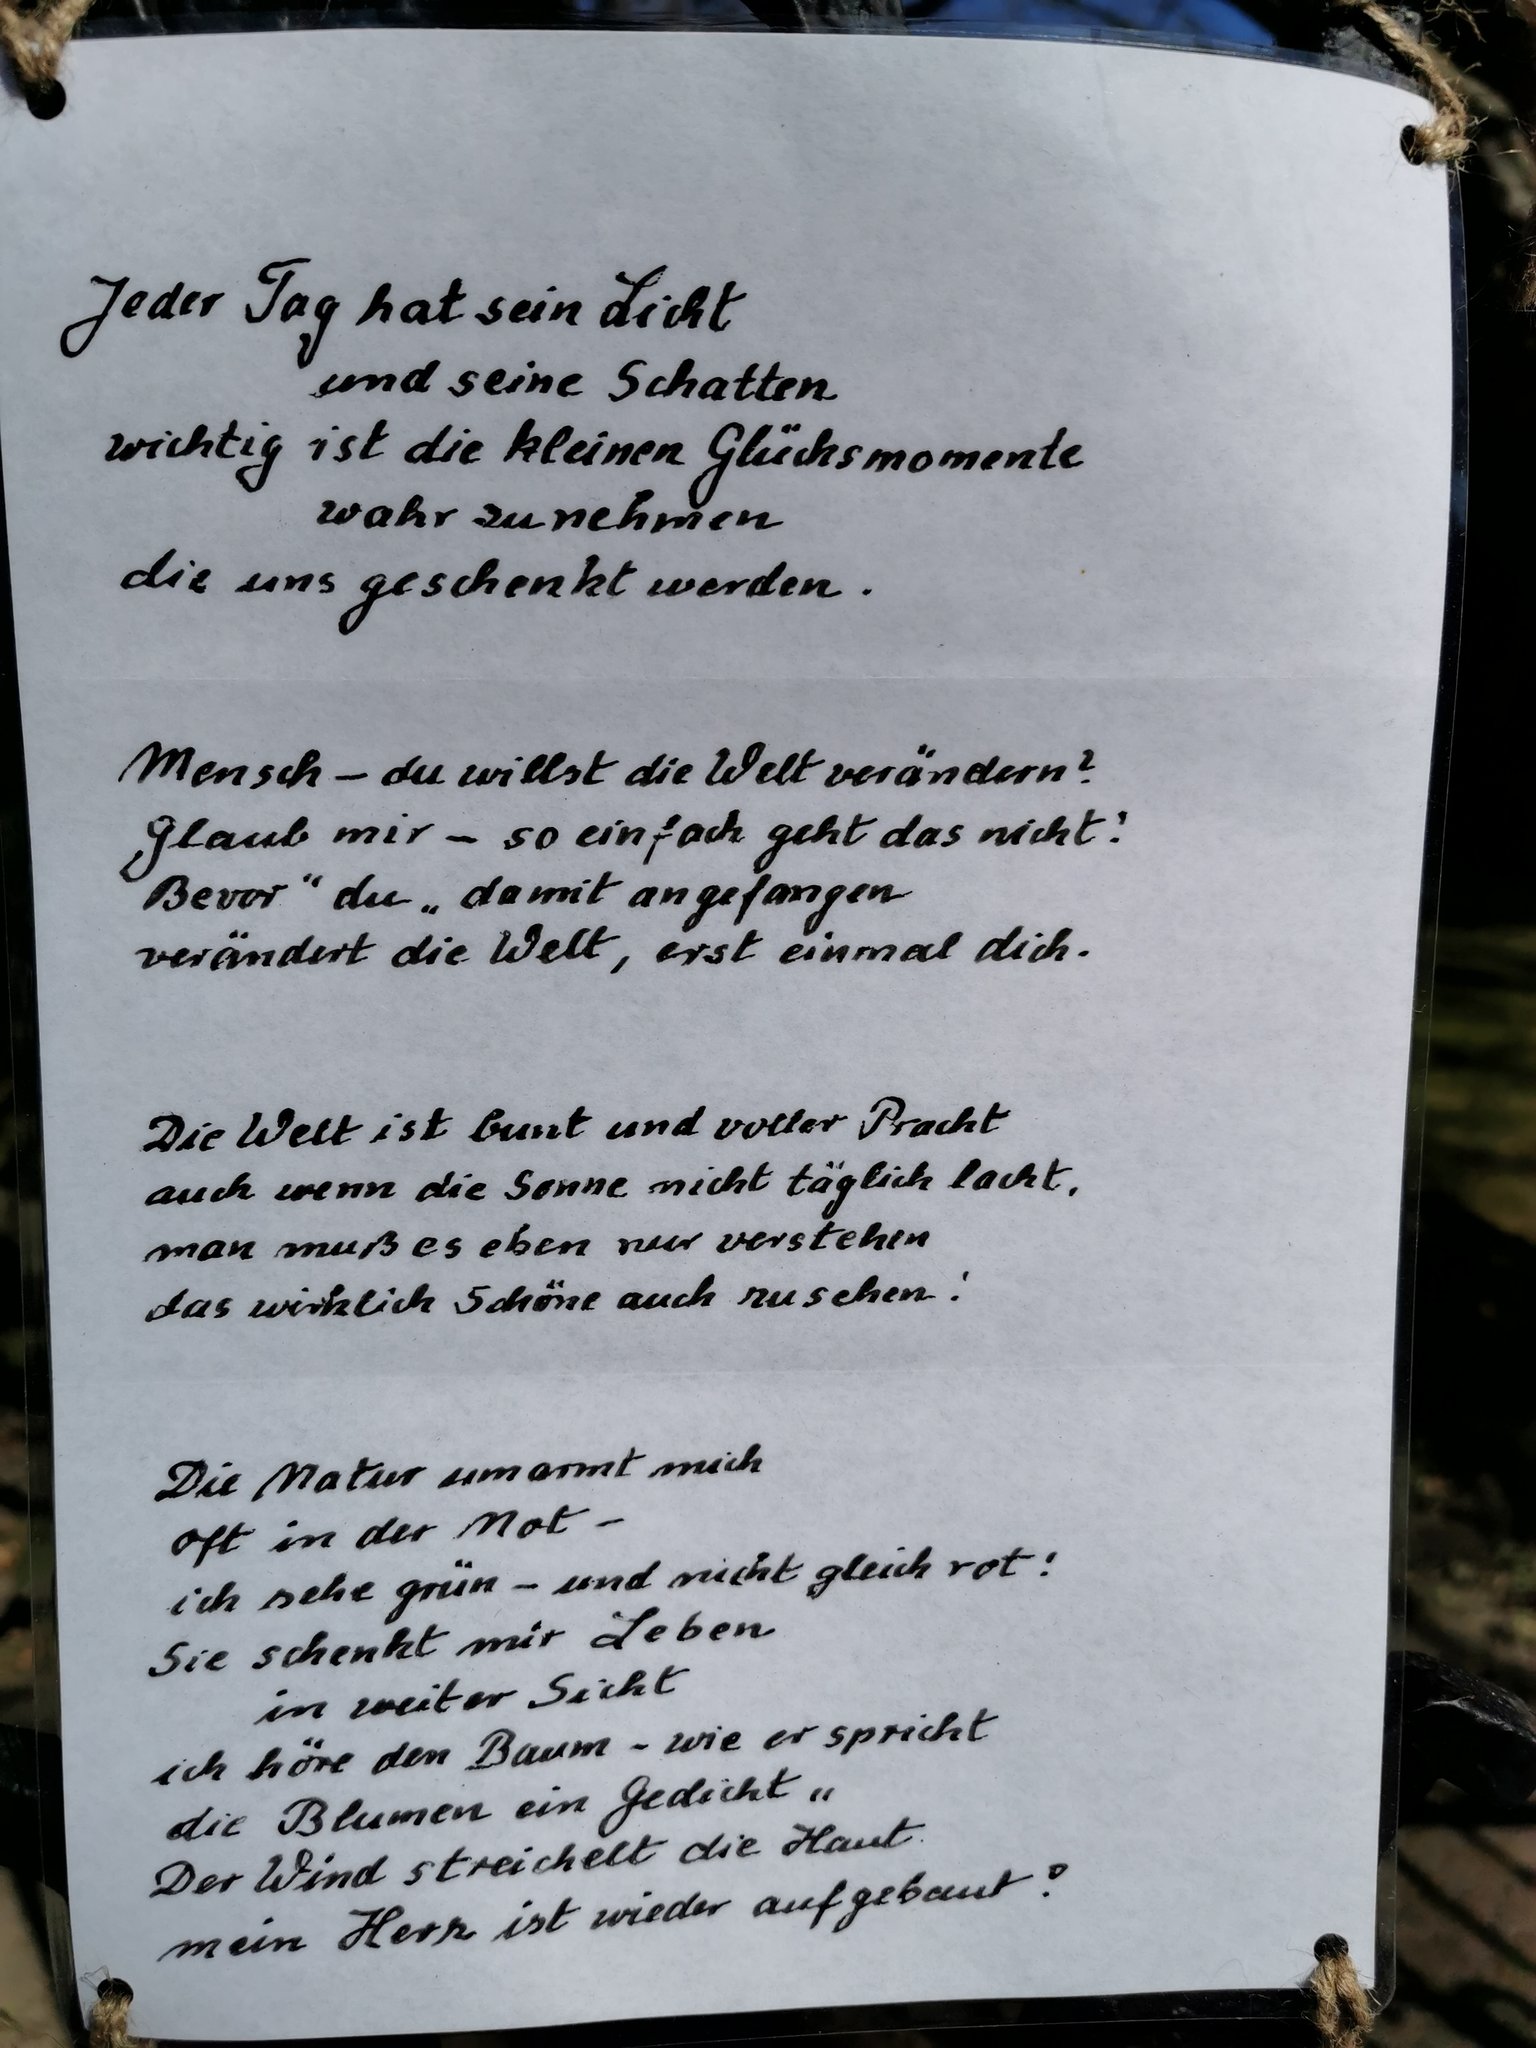 Jeder Tag hat sein Licht
und seine Schatten
wichtig ist die kleinen Glücksmomente
wahr zu nehmen
die uns geschenkt werden.
Mensch – du willst die Welt verändern?
Glaub mir – so einfach geht das nicht!
Bevor " du „ damit angefangen
verändert die Welt, erst einmal dich.
Die Welt ist bunt und voller Pracht
auch wenn die Sonne nicht täglich lacht,
man muß es eben nur verstehen
das wirklich Schöne auch zu sehen!
Die Natur umarmt mich
oft in der Not –
ich sehe grün – und nicht gleich rot!
Sie schenkt mir Leben
in weiter Sicht
ich höre den Baum – wie er spricht
die Blumen ein Gedicht „
Der Wind streichelt die Haut
mein Herz ist wieder aufgebaut!